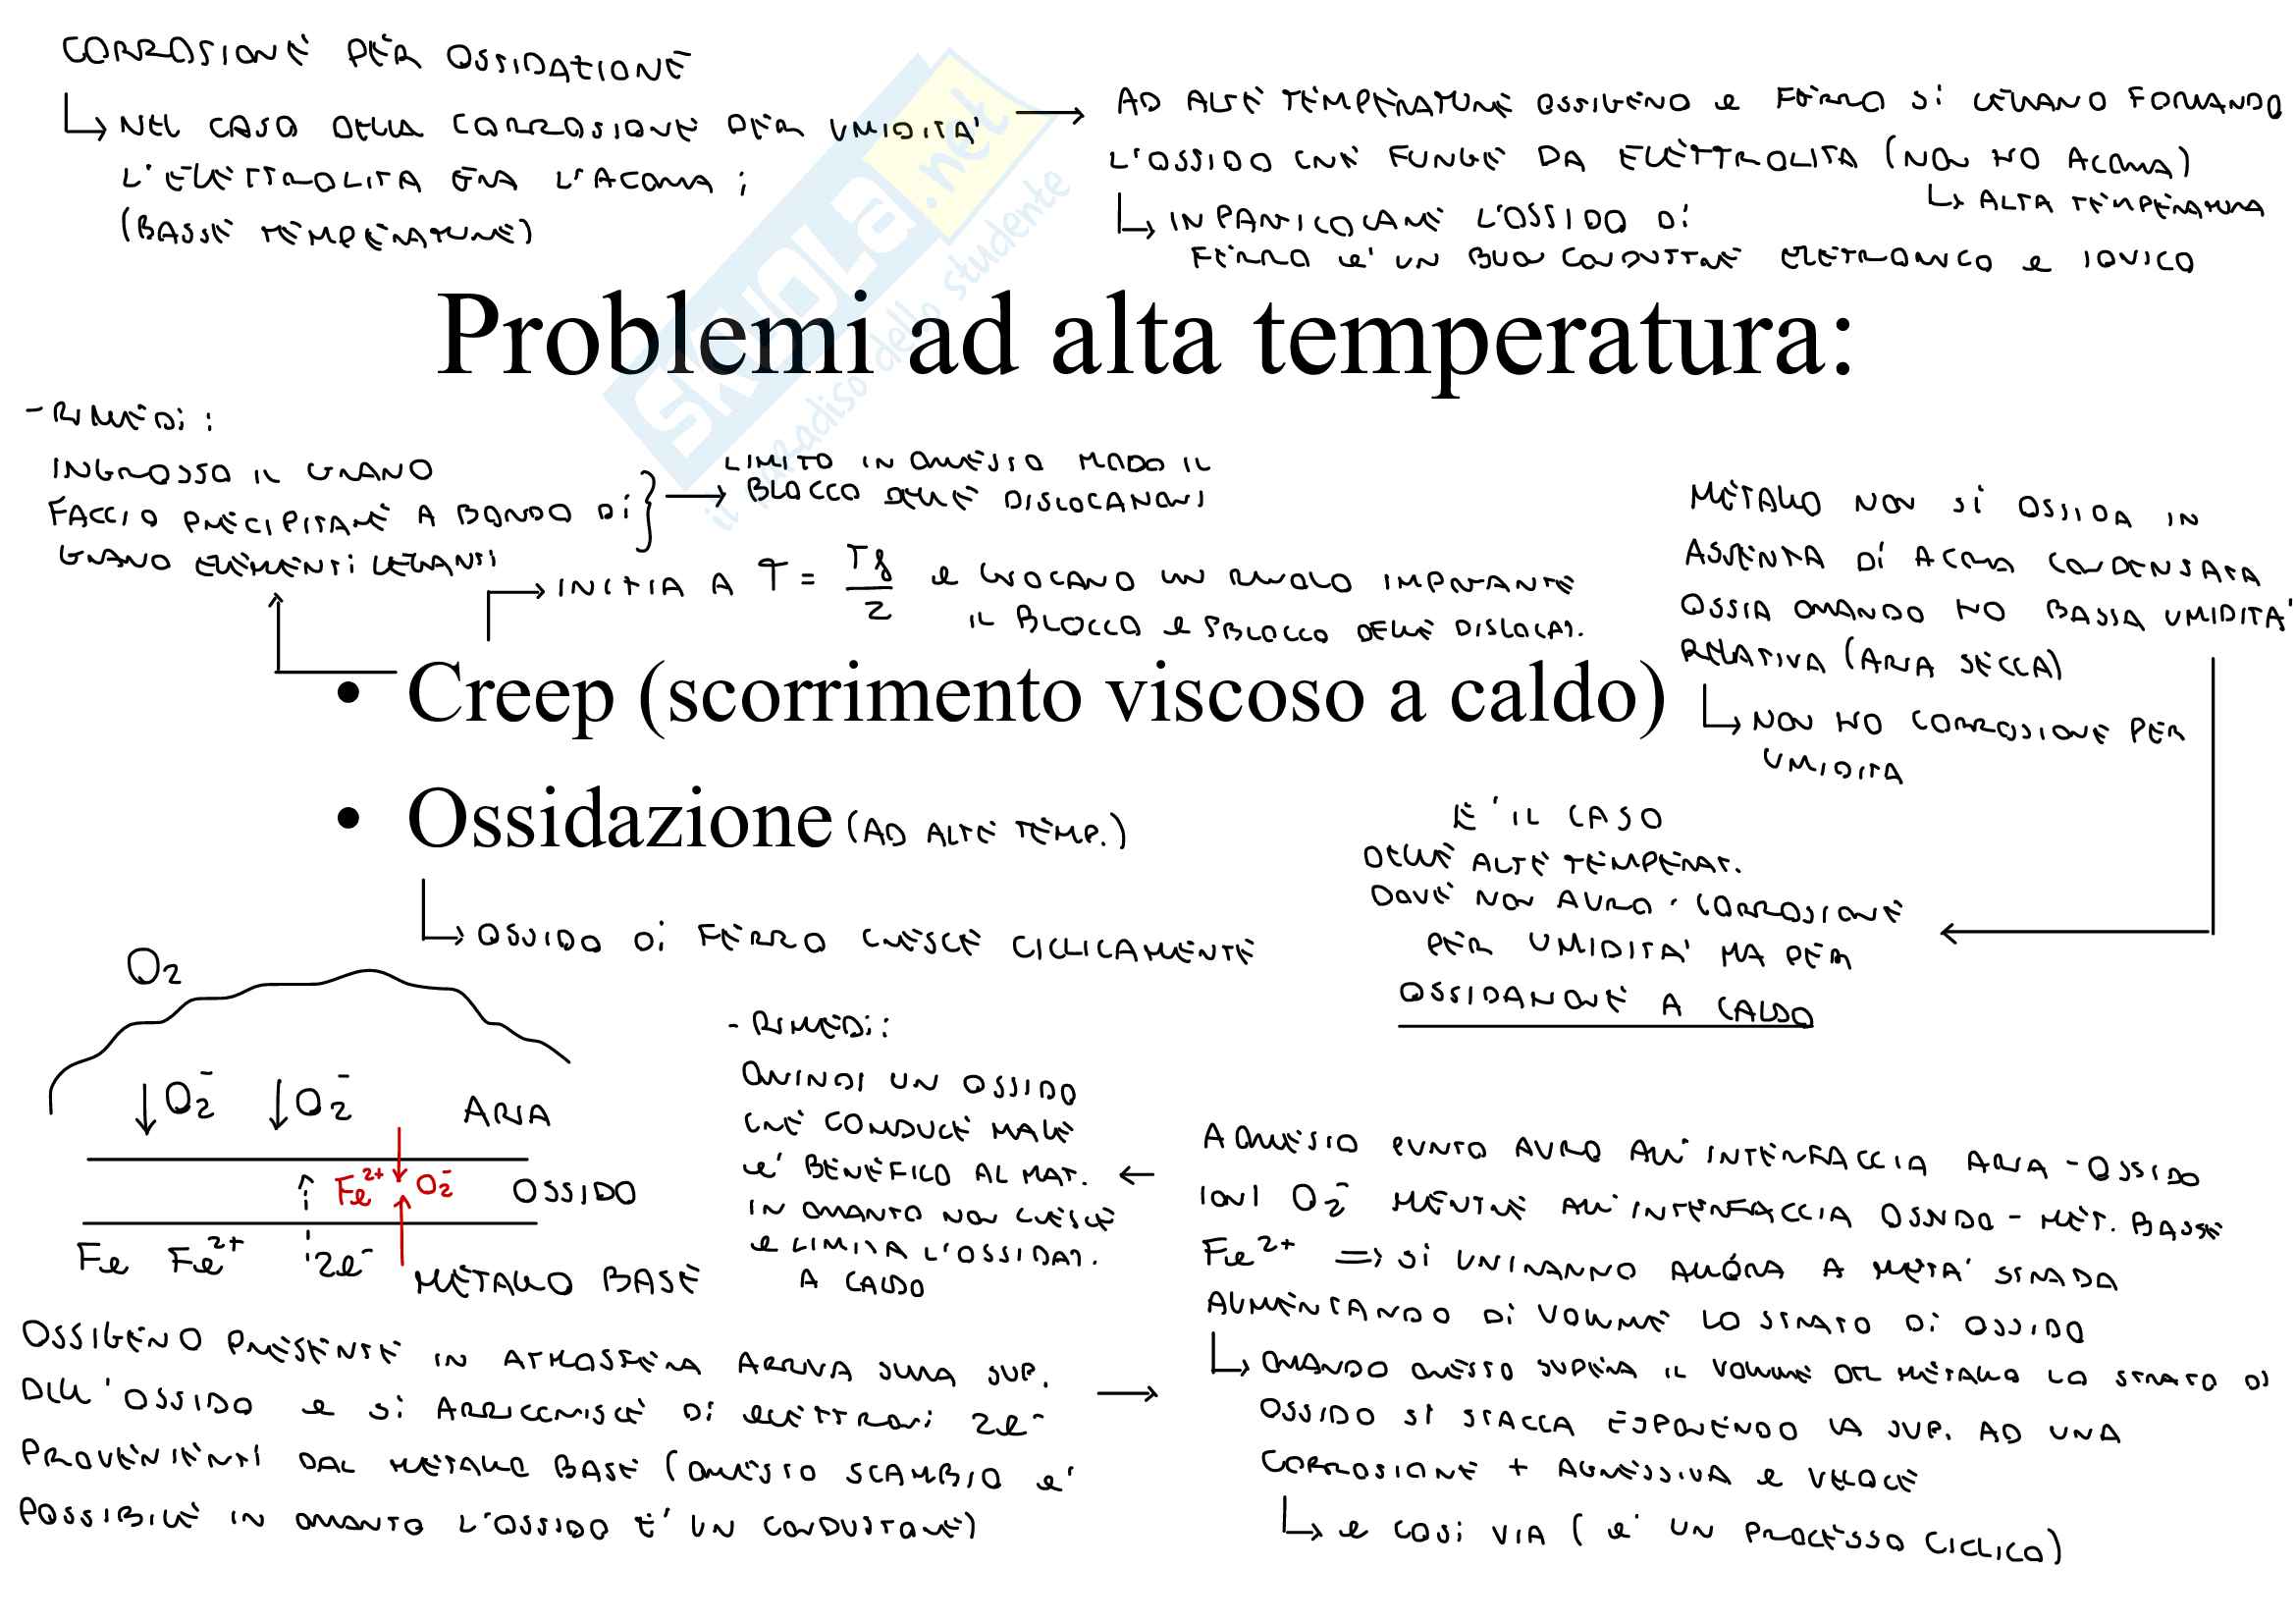 CORROSIONE PER OSSIDAZIONE
NEL CASO DELLA CORROSIONE PER UMIDITA'
L'ELETTROLITA ERA L'ACQUA;
(BASSE TEMPERATURE)
AD ALTE TEMPERATURE OSSIGENO e FERRO SI LEGANO FORMANDO
L'OSSIDO CHE FUNGE DA ELETTROLITA (NON HO ACQUA)
ALTA TEMPERATURA
IN PARTICOLARE L'OSSIDO DI
FERRO e' UN BUON CONDUTTORE ELETTRONICO e IONICO
SKUOLA.net
il paradiso dello studente
Problemi ad alta temperatura:
- RIMEDI:
INGROSSO IL GRANO
FACCIO PRECIPITARE A BORDO DI
GRANO ELEMENTI LEGANTI
LIMITO IN QUESTO MODO IL
BLOCCO DELLE DISLOCAZIONI
INIZIA A T = Tf/2 e GIOCANO UN RUOLO IMPORTANTE
IL BLOCCO e SBLOCCO DELLE DISLOCAZ.
METALLO NON SI OSSIDA IN
ASSENZA DI ACQUA CONDENSATA
OSSIA QUANDO HO BASSA UMIDITA'
RELATIVA (ARIA SECCA)
NON HO CORROSIONE PER
UMIDITA
• Creep (scorrimento viscoso a caldo)
• Ossidazione (AD ALTE TEMP.)
E' IL CASO
DELLE ALTE TEMPERAT.
DOVE NON AVRO' CORROSIONE
PER UMIDITA' MA PER
OSSIDAZIONE A CALDO
OSSIDO DI FERRO CRESCE CICLICAMENTE
O2
O2- O2- ARIA
Fe2+ O2- OSSIDO
Fe Fe2+ 2e- METALLO BASE
- RIMEDI:
QUINDI UN OSSIDO
CHE CONDUCE MALE
e' BENEFICO AL MAT.
IN QUANTO NON CRESCE
e LIMITA L'OSSIDAZ.
A CALDO
OSSIGENO PRESENTE IN ATMOSFERA ARRIVA SULLA SUP.
DELL'OSSIDO e SI ARRICCHISCE DI ELETTRONI 2e-
PROVENIENTI DAL METALLO BASE (QUESTO SCAMBIO e'
POSSIBILE IN QUANTO L'OSSIDO E' UN CONDUTTORE)
A QUESTO PUNTO AVRO ALL'INTERFACCIA ARIA - OSSIDO
IONI O2- MENTRE ALL'INTERFACCIA OSSIDO - MET. BASE
Fe2+ => SI UNIRANNO ALLORA A META' STRADA
AUMENTANDO DI VOLUME LO STRATO DI OSSIDO
QUANDO QUESTO SUPERA IL VOLUME DEL METALLO LO STRATO DI
OSSIDO SI STACCA ESPONENDO LA SUP. AD UNA
CORROSIONE + AGRESSIVA e VELOCE
e COSI VIA (e' UN PROCESSO CICLICO)